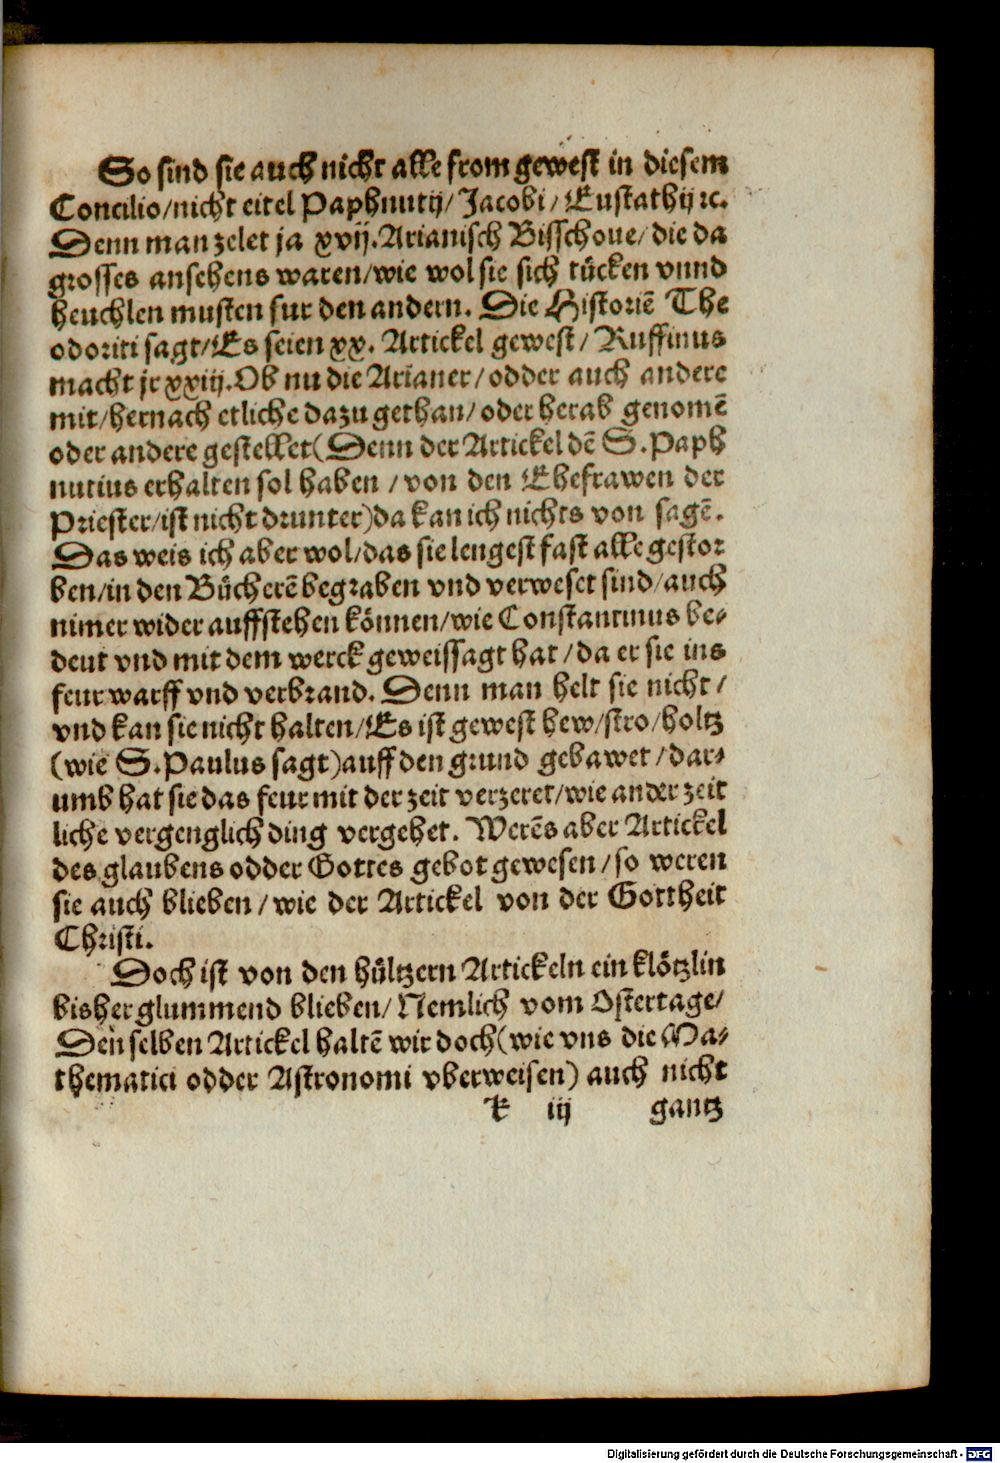 So sind sie auch nicht alle from gewest in diesem
Concilio/nicht eitel Paphnutij/ Jacobi/ Eustathij ꝛc.
Denn man zelet ja xvij. Arianisch Bisschoue/ die da
grosses ansehens waren/wie wol sie sich tücken vnnd
heuchlen musten fur den andern. Die Historiē The
odoriti sagt/Es seien xx. Artickel gewest/ Ruffinus
macht jr xxiij. Ob nu die Arianer/ odder auch andere
mit/hernach etliche dazu gethan/ oder herab genomē
oder andere gestellet(Denn der Artickel dē S. Paph
nutius erhalten sol haben / von den Ehefrawen der
Priester/ist nicht drunter)da kan ich nichts von sagē.
Das weis ich aber wol/das sie lengest fast alle gestor
ben/in den Bücherē begraben vnd verweset sind/auch
nimer wider auffstehen können/wie Constantinus be-
deut vnd mit dem werck geweissagt hat /da er sie ins
feur warff vnd verbrand. Denn man helt sie nicht /
vnd kan sie nicht halten/Es ist gewest hew/stro/holtz
(wie S. Paulus sagt)auff den grund gebawet /dar-
umb hat sie das feur mit der zeit verzeret/wie ander zeit
liche vergenglich ding vergehet. Werēs aber Artickel
des glaubens odder Gottes gebot gewesen /so weren
sie auch blieben /wie der Artickel von der Gottheit
Christi.
Doch ist von den hültzern Artickeln ein klötzlin
bisher glummend blieben/ Nemlich vom Ostertage/
Den selben Artickel haltē wir doch(wie vns die Ma-
thematici odder Astronomi vberweisen) auch nicht
k iij gantz
Digitalisierung gefördert durch die Deutsche Forschungsgemeinschaft - DFG